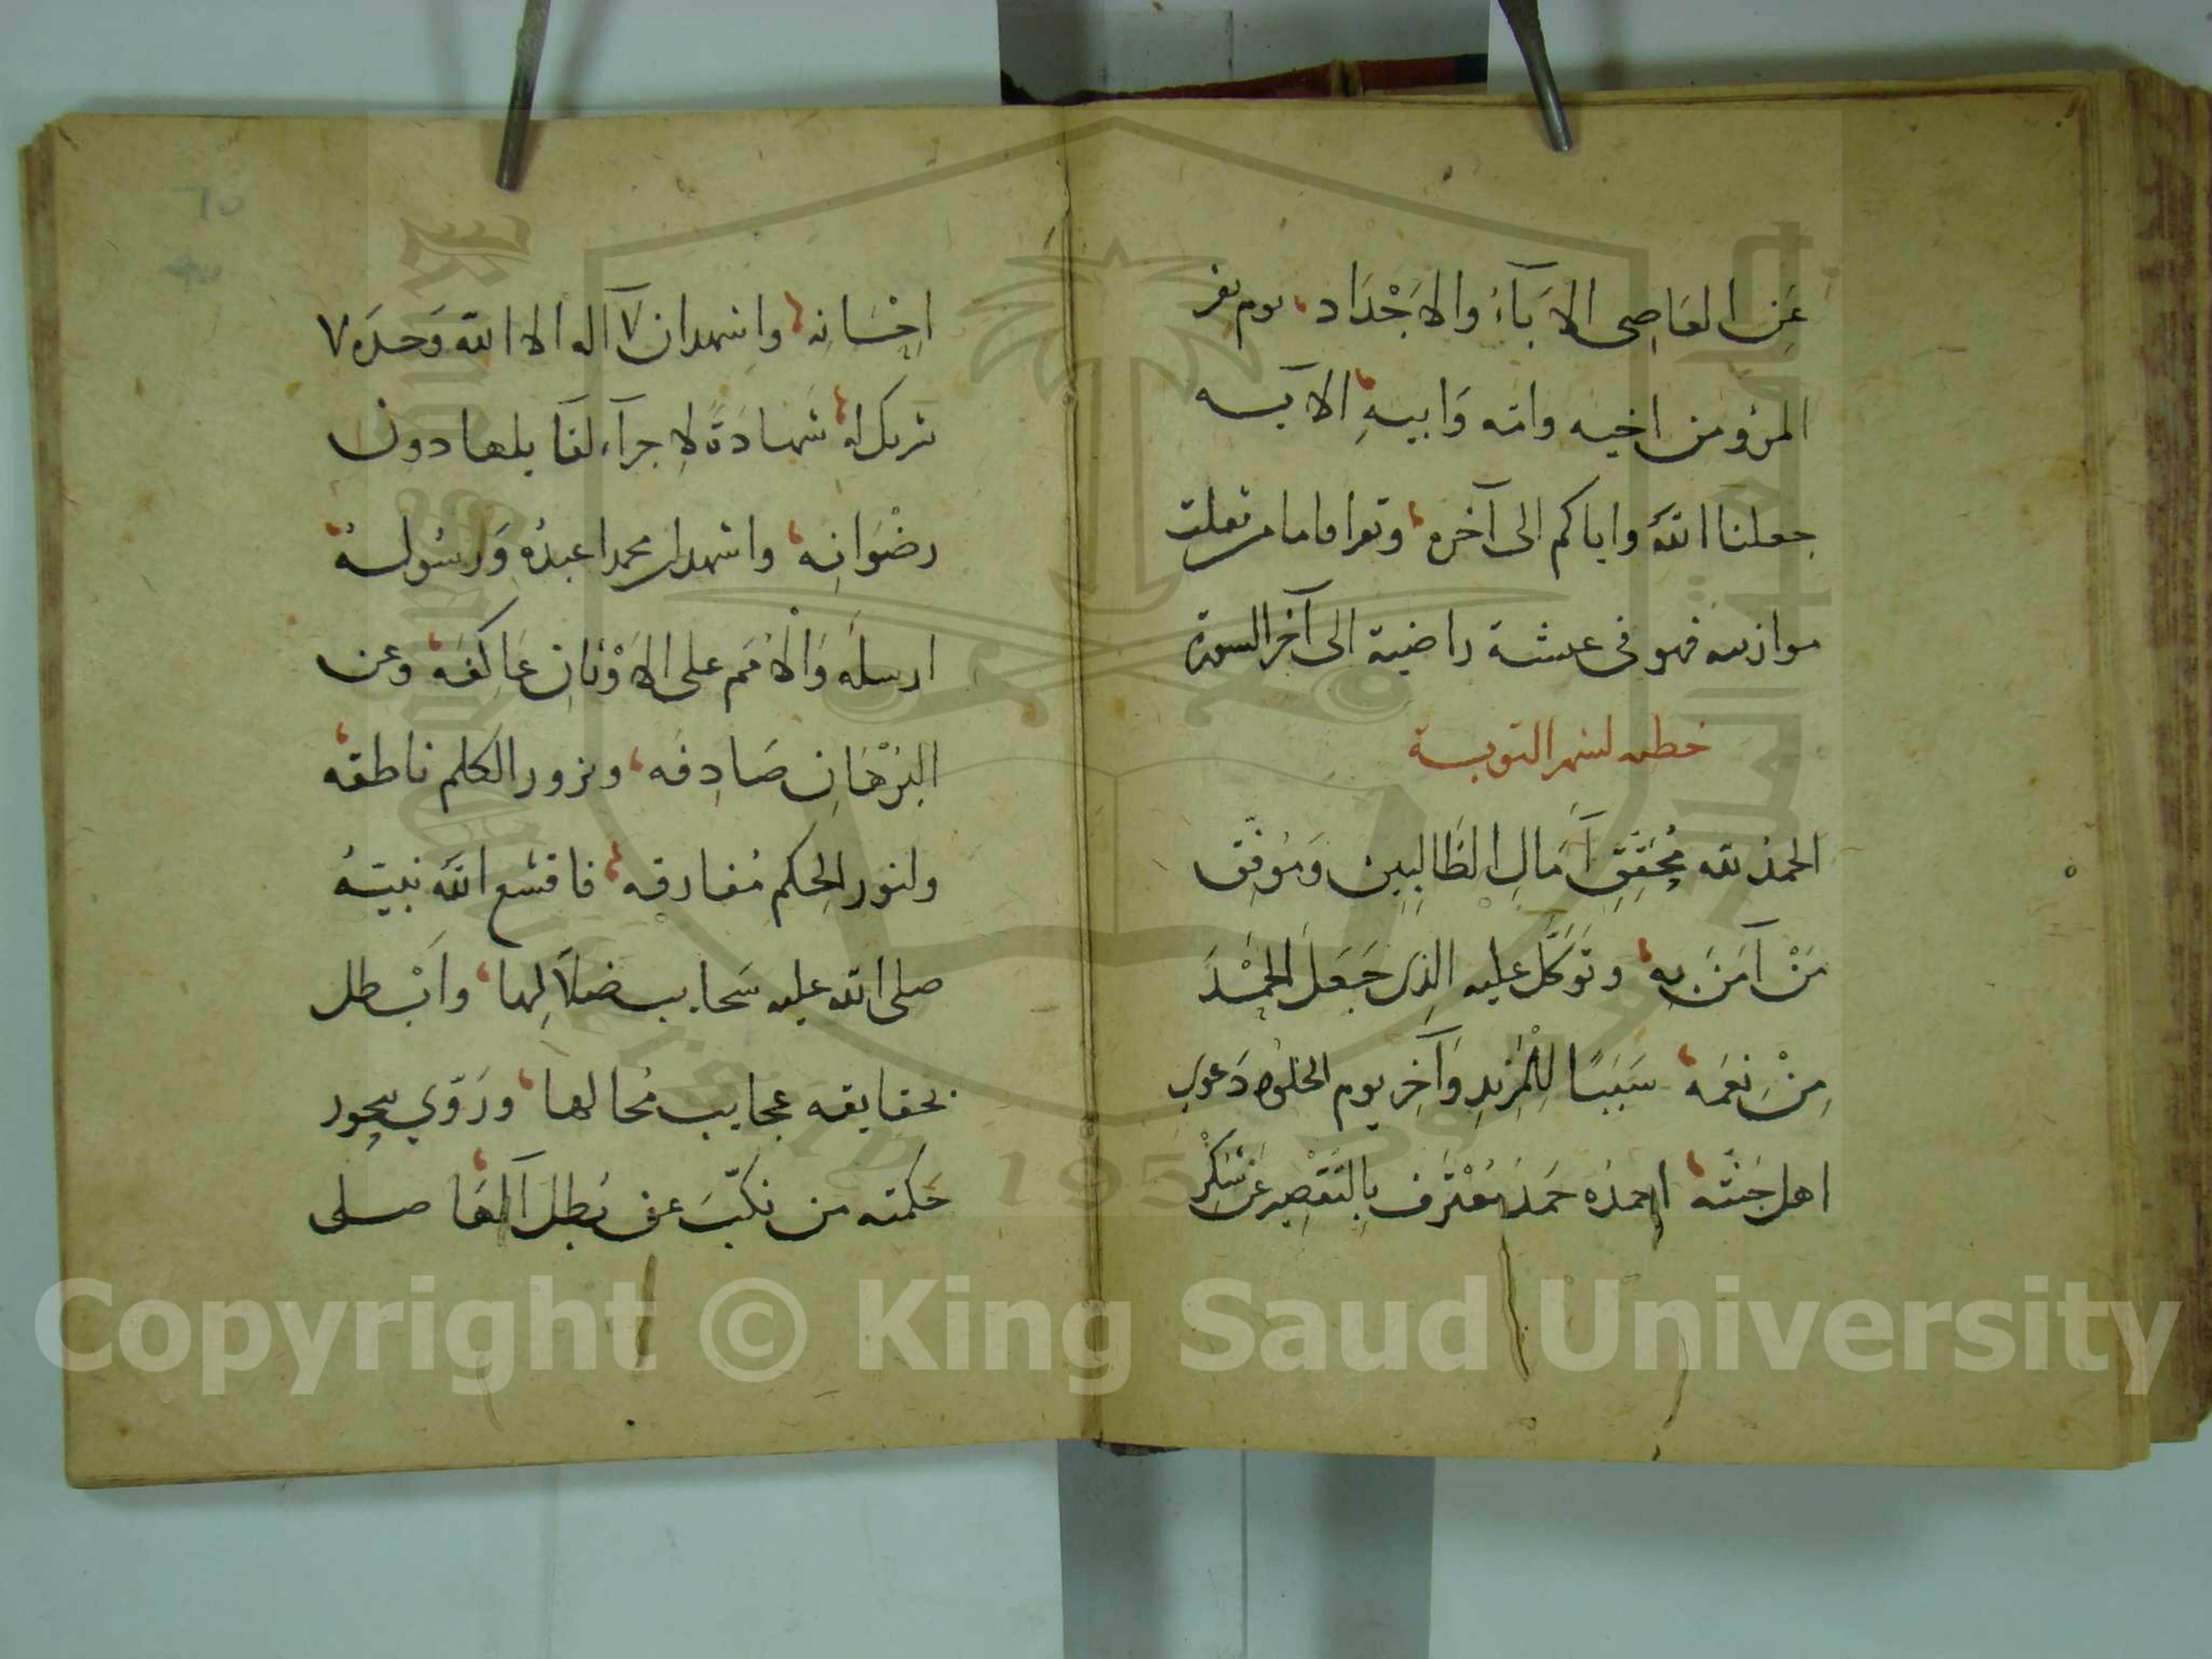 عَنِ العَاصِى الابَآءُ والاجْدَاد، يوم يفر
المرؤ من اخيه وامه وَابيهِ، الايه
جعلنا اللهُ واياكم الى آخره، وتقرا فاما من ثقلت
موازينه فهو فى عيشة راضية الى آخر السورة
خطبه لشهر التوبة
الحمدُ لله مُحَقِّقِ آمَالِ الطَّالِبِين وَمُوَفِّق
مَنْ آمَنَ بِهِ، وتَوَكَّلَ عليه الذِى جَعَلَ الحَمْدَ
مِنْ نِعَمَه، سَبَبًا لِلْمَزِيدِ وَآخِر يوم الخلود دَعوى
اهل جَنَّته، احمدُه حَمدَ مُعْتَرِف بِالتَقْصِيرِ عَن شكْرِ
اِحْسَانِه، واشهد ان لآ اله الا الله وَحدَه لا
شريك له، شهادَةً لا جزآء لقَايلها دون
رضْوَانِه، واشهد ان محمدا عبدُه وَرَسُوله،
ارسلَه وَالْأمَم على الاوْثانِ عَاكفَه، وعن
البُرْهَانِ صَادِفَه، وبزور الكلم ناطقه،
ولنور الحِكم مُفارقه، فاقشع الله بنبيّه
صلى الله عليه سَحايب ضلَالِها، وَابْطل
بحقايقه عجايب مُحَالها، ورَوّي ببحور
حكمته من نكّبَ عن بُطل آلهَا، صلى
Copyright © King Saud University